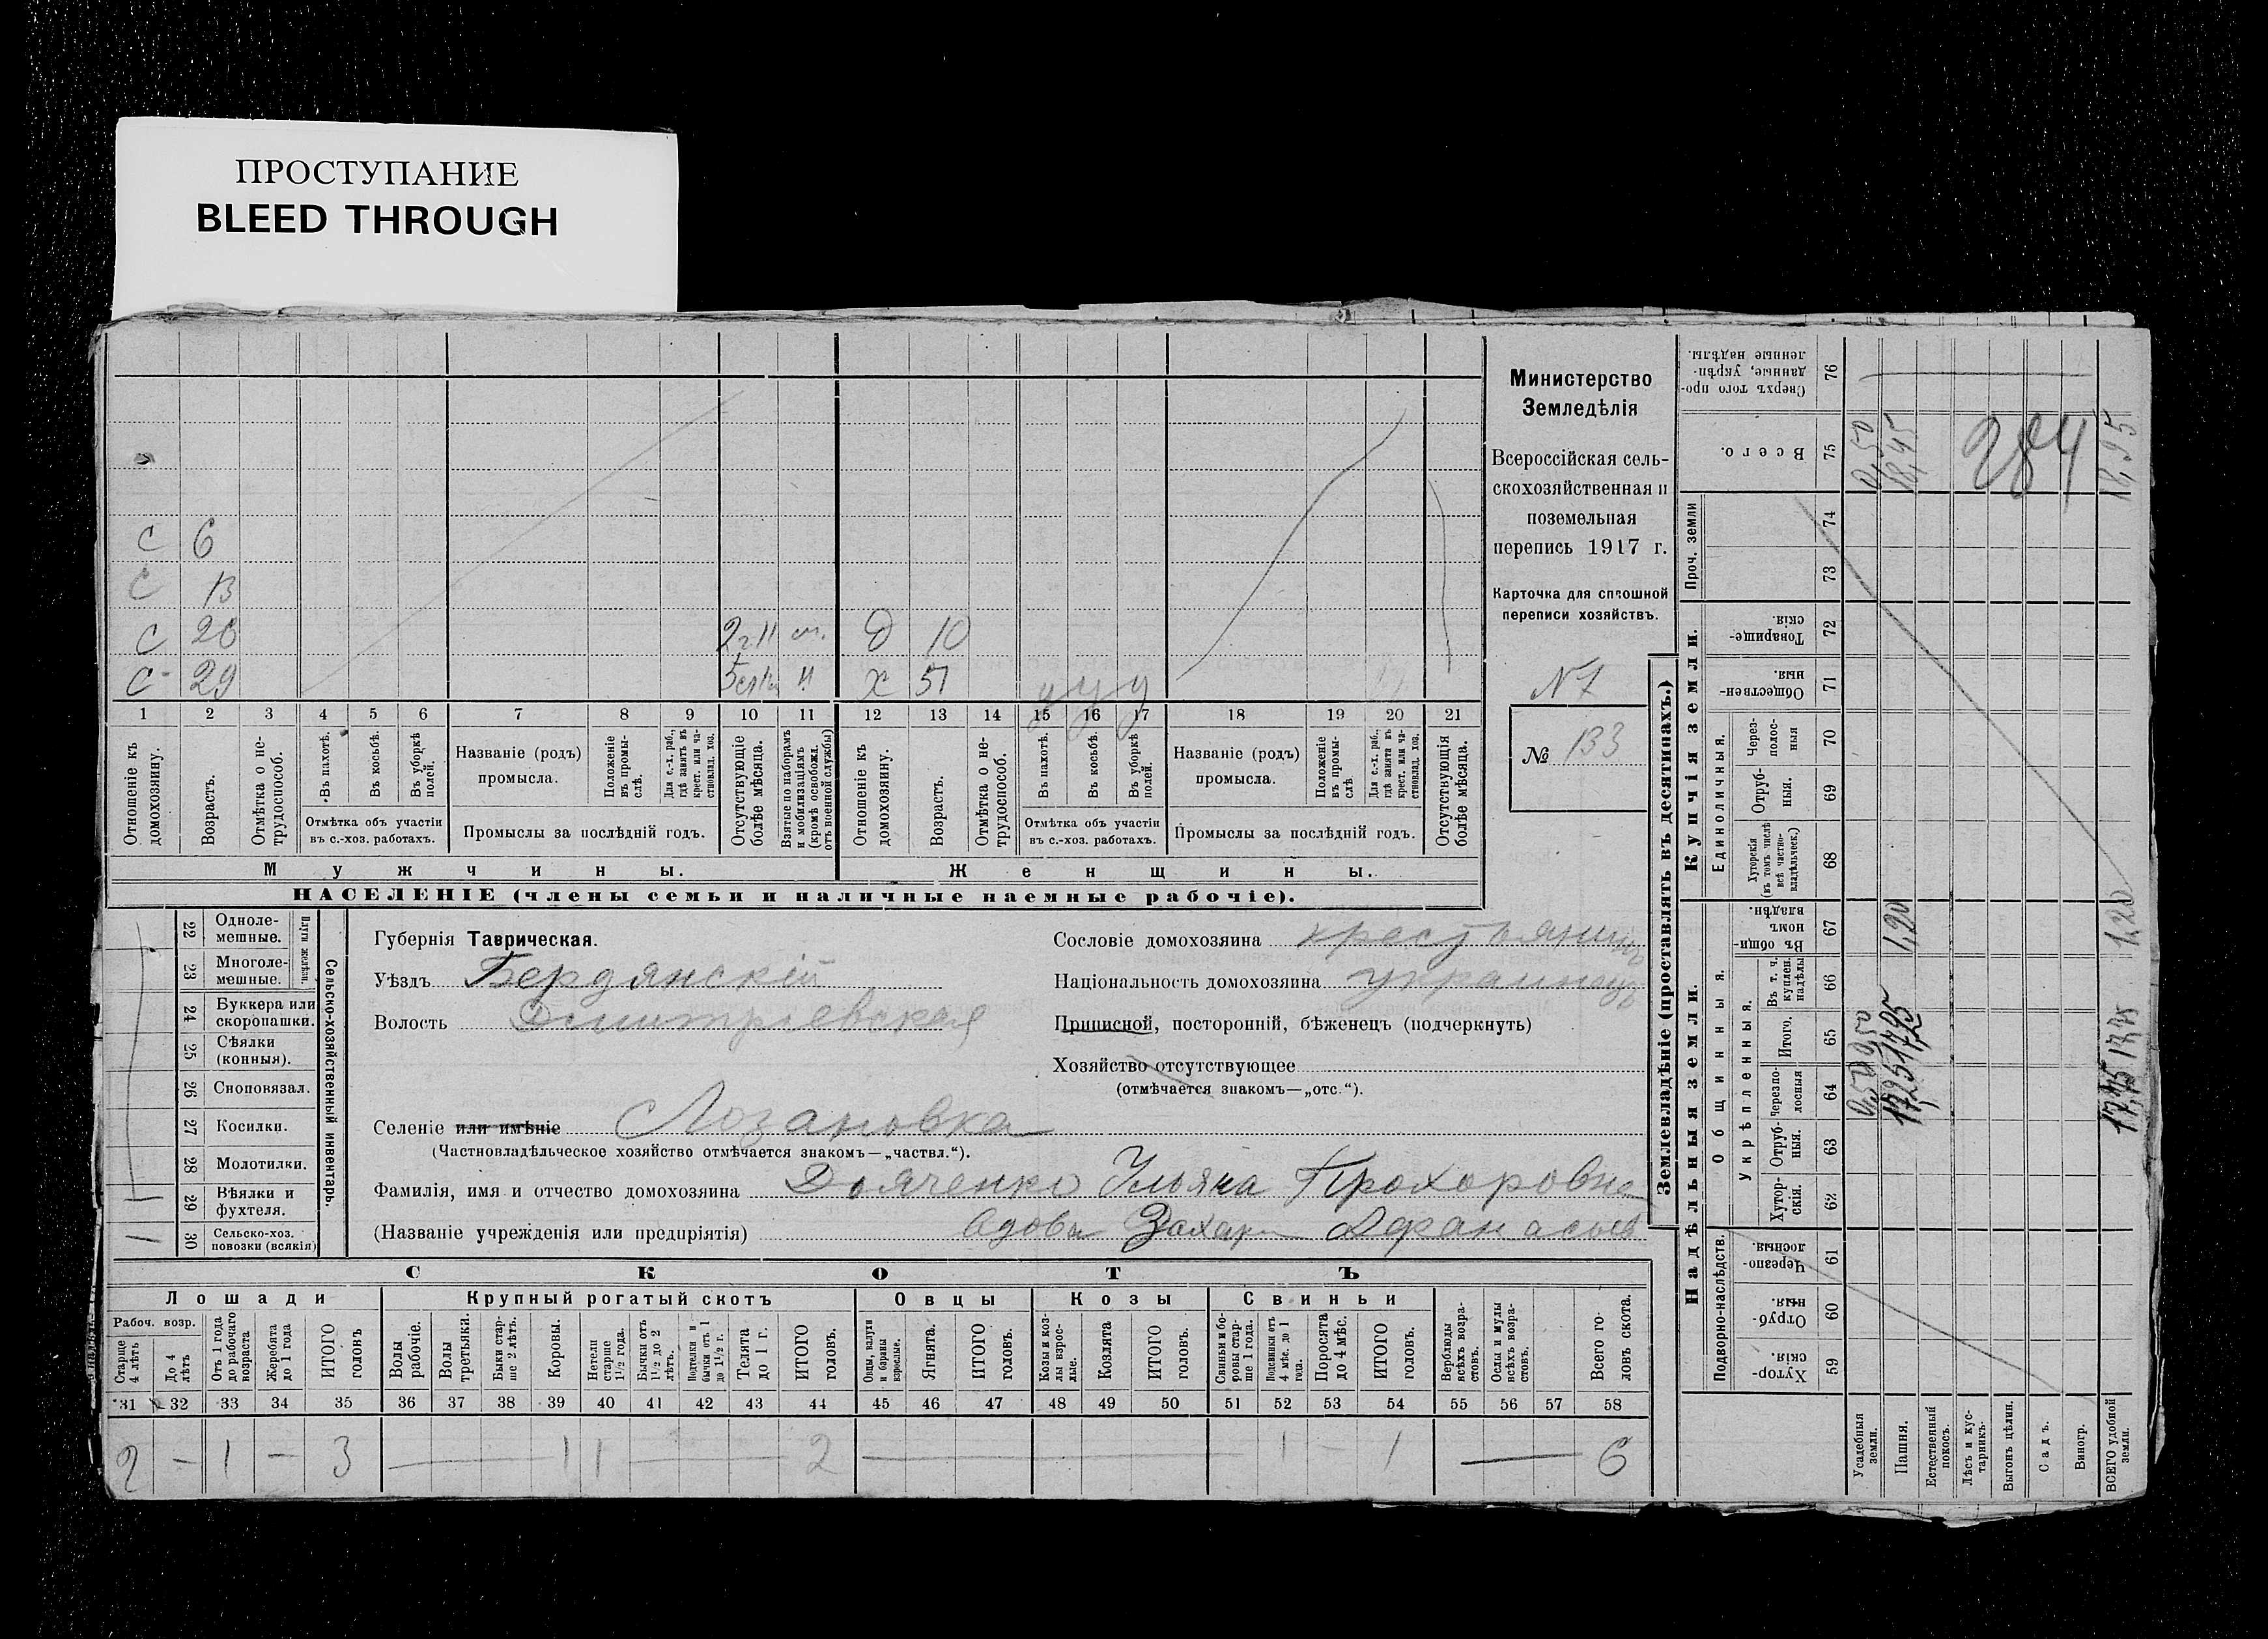 ПРОСТУПАНИЕ
BLEED THROUGH
С 6
С 13
С 26 2 г 11 м. Д 10
С 29 11 Х 51 у у у
1 2 3 4 5 6 7 8 9 10 11 12 13 14 15 16 17 18 19 20 21
Отношеніе къ домохозяину.
Возрастъ.
Отмѣтка о не-трудоспособ.
Въ пахотѣ.
Въ косьбѣ.
Въ уборкѣ полей.
Отмѣтка объ участіи
въ с.-хоз. работахъ.
Названіе (родъ)
промысла.
Положеніе въ промы-слѣ.
Для с.-х. раб., гдѣ занятъ въ крест. или ча-стновлад. хоз.
Промыслы за послѣдній годъ.
Отсутствующіе болѣе мѣсяца.
Взятые по наборамъ и мобилизаціямъ (кромѣ освобожд. отъ военной службы)
Отношеніе къ домохозяину.
Возрастъ.
Отмѣтка о не-трудоспособ.
Въ пахотѣ.
Въ косьбѣ.
Въ уборкѣ полей.
Отмѣтка объ участіи
въ с.-хоз. работахъ.
Названіе (родъ)
промысла.
Положеніе въ промы-слѣ
Для с.-х. раб., гдѣ занята въ крест. или ча-стновлад. хоз.
Промыслы за послѣдній годъ.
Отсутствующія болѣе мѣсяца.
Мужчины. Женщины.
НАСЕЛЕНІЕ (члены семьи и наличные наемные рабочіе).
Министерство
Земледѣлія
Всероссійская сель-
скохозяйственная и
поземельная
перепись 1917 г.
Карточка для сплошной
переписи хозяйствъ.
№ 133
22 Одноле-мешные.
23 Многоле-мешные.
Плуги желѣзн.
24 Буккера или скоропашки.
25 Сѣялки (конныя).
26 Сноповязал.
27 Косилки.
28 Молотилки.
29 Вѣялки и фухтеля.
30 Сельско-хоз. повозки (всякія)
Сельско-хозяйственный инвентарь.
Губернія Таврическая.
Уѣздъ Бердянскій
Волость Дмитріевская
Селеніе или имѣніе Лозановка
(Частновладѣльческое хозяйство отмѣчается знакомъ—„частвл.“).
Фамилія, имя и отчество домохозяина Дьяченко Ульяна Прохоровна
(Названіе учрежденія или предпріятія) вдова Захара Афанасьев
Сословіе домохозяина крестьянинъ
Національность домохозяина украинецъ
Приписной, посторонній, бѣженецъ (подчеркнуть)
Хозяйство отсутствующее
(отмѣчается знакомъ—„отс.“).
СКОТЪ
Лошади Крупный рогатый скотъ Овцы Козы Свиньи
Рабоч. возр.
Старше 4 лѣтъ
До 4 лѣтъ
Отъ 1 года до рабочаго возраста
Жеребята до 1 года
ИТОГО головъ
Волы рабочіе.
Волы третьяки.
Быки стар-ше 2 лѣтъ.
Коровы.
Нетели старше 1½ года.
Бычки отъ 1½ до 2 лѣтъ.
Подтелки и бычки отъ 1 до 1½ г.
Телята до 1 г.
ИТОГО головъ.
Овцы, валухи и бараны взрослые.
Ягнята.
ИТОГО головъ.
Козы и коз-лы взрос-лые.
Козлята
ИТОГО головъ.
Свиньи и бо-ровы стар-ше 1 года.
Подсвинки отъ 4 мѣс. до 1 года.
Поросята до 4 мѣс.
ИТОГО головъ.
Верблюды всѣхъ возра-стовъ.
Ослы и мулы всѣхъ возра-стовъ.
Всего го-ловъ скота.
31 32 33 34 35 36 37 38 39 40 41 42 43 44 45 46 47 48 49 50 51 52 53 54 55 56 57 58
2 — 1 — 3 — 1 1 — 2 — 1 - 1 — 6
Землевладѣніе (проставлять въ десятинахъ.)
Надѣльныя земли. Купчія земли.
Подворно-наслѣдств.
Общинныя.
Укрѣпленныя.
Единоличныя.
Проч. земли
Хутор-скія. 59
Отруб-ныя. 60
Черезпо-лосныя. 61
Хутор-скія. 62
Отруб-ныя. 63
Черезпо-лосныя 64
Итого. 65
Въ т. ч. куплен. надѣлы 66
Въ общин-номъ владѣн. 67
Хуторскія (въ томъ числѣ всѣ частно-владѣльческ.) 68
Отруб-ныя. 69
Через-полос-ныя 70
Обществен-ныя. 71
Товарище-скія. 72
73
74
Всего. 75
Сверхъ того про-данные, укрѣп-ленные надѣлы. 76
Усадебныя земли. 0,50 0,50 0,50
Пашня. 17,25 17,25 1,20 18,45
Естественный покосъ.
Лѣсъ и кус-тарникъ.
Выгонъ цѣлин.
Садъ.
Виногр.
ВСЕГО удобной земли. 17,75 17,75 1,20 18,95
284